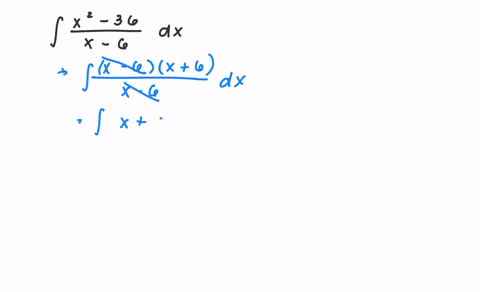 ∫ (x² - 36)/(x - 6) dx
→ ∫ (x - 6)(x + 6)/(x - 6) dx
= ∫ x +